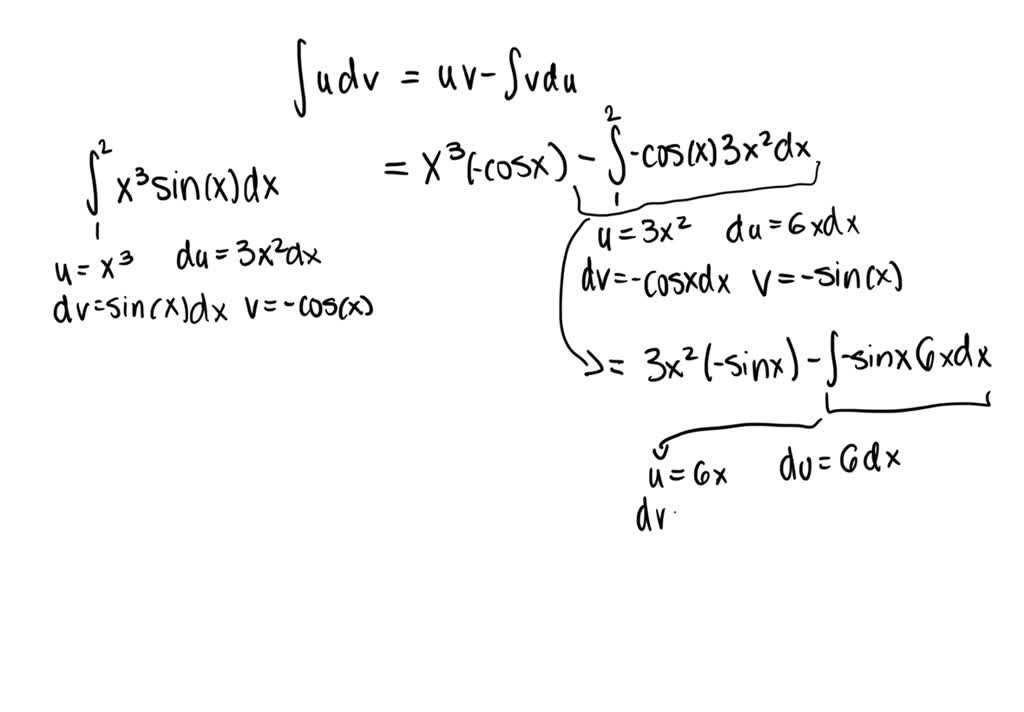 ∫udv = uv-∫vdu
∫₁² x³sin(x)dx = x³(-cosx) - ∫₁² -cos(x)3x²dx
u = x³ du = 3x²dx
dv=sin(x)dx v=-cos(x)
u = 3x² du = 6xdx
dv=-cosxdx v=-sin(x)
= 3x²(-sinx) - ∫-sinx6xdx
u = 6x du = 6dx
dv